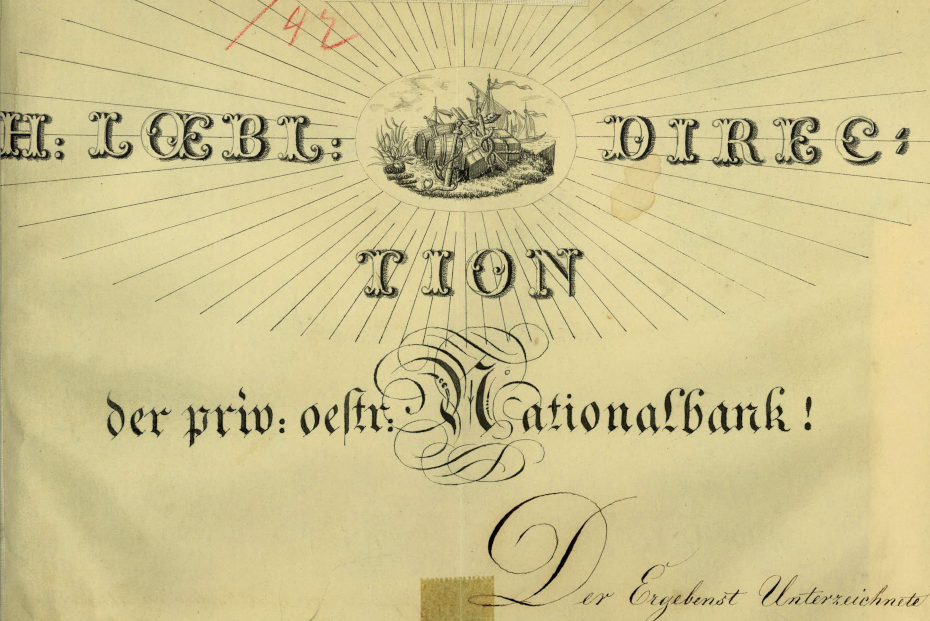 /42
H: LŒBL: DIREC-
TION
der priv: oestr: Nationalbank!
Der Ergebenst Unterzeichnete